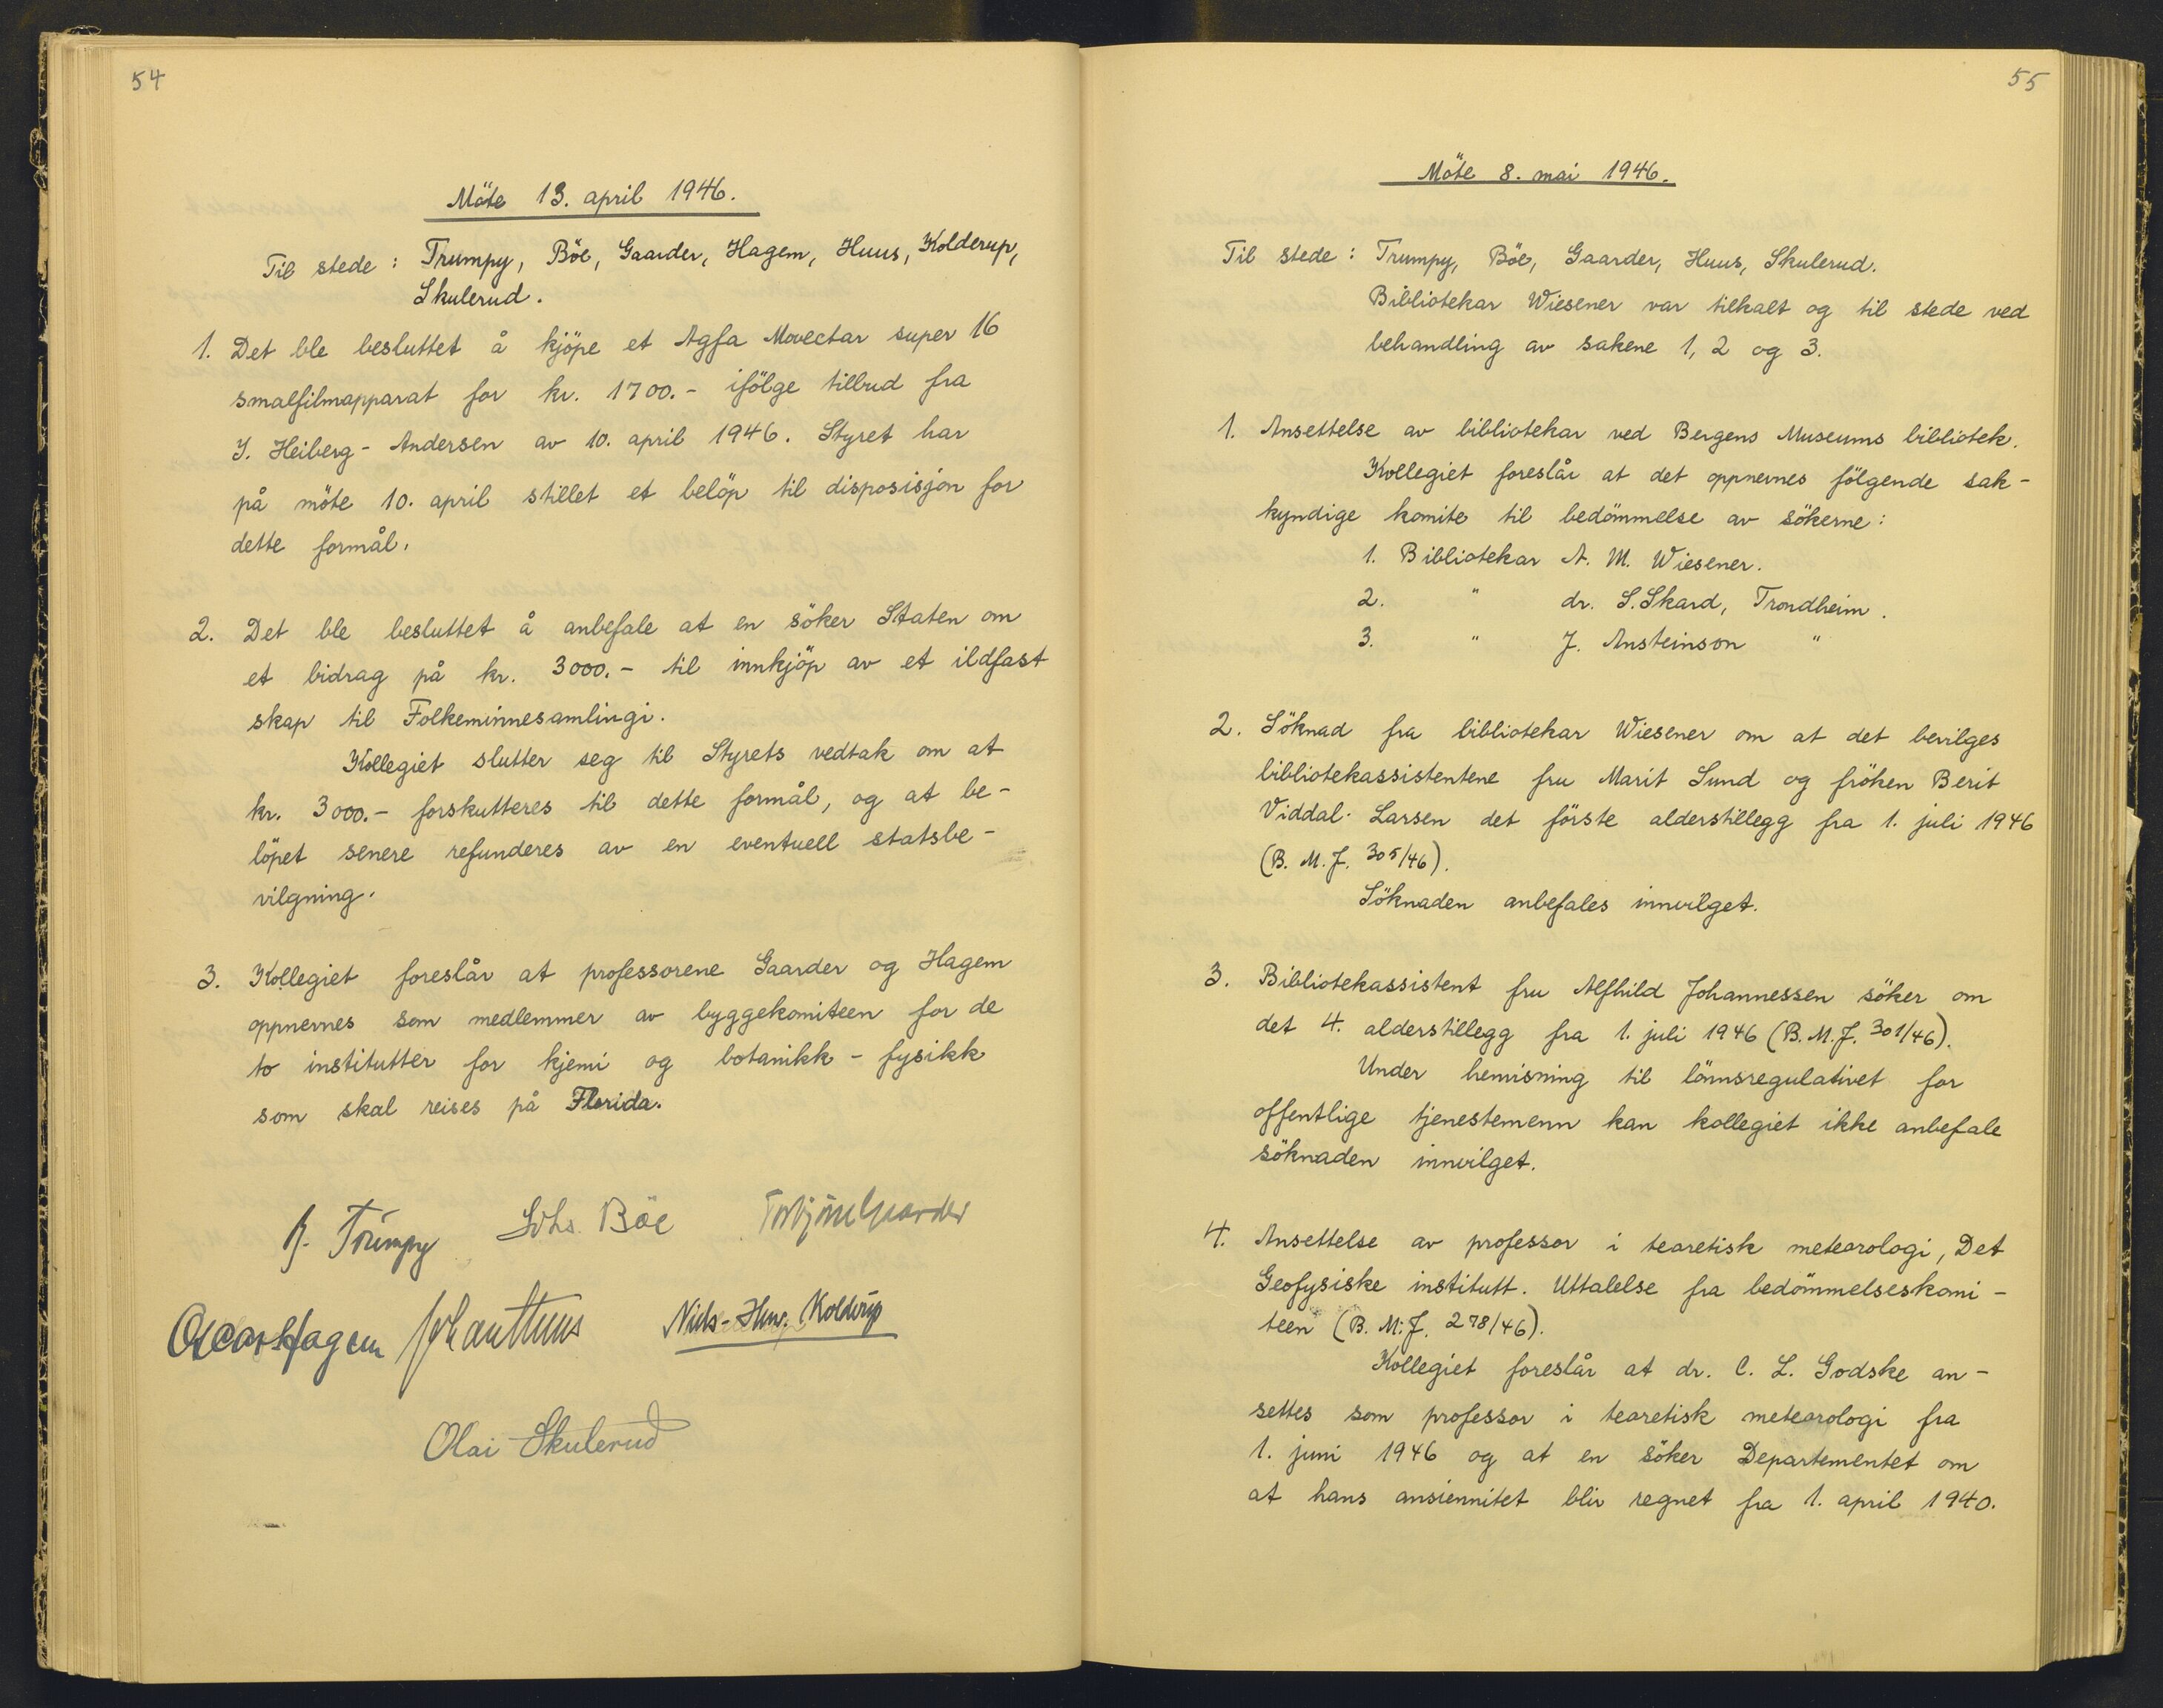 54
Möte 13. april 1946.
Til stede : Trumpy, Böe, Gaarder, Hagem, Huus, Kolderup,
Skulerud.
1. Det ble besluttet å kjöpe et Agfa Movector super 16
smalfilmapparat for kr. 1700.- ifölge tilbud fra
J. Heiberg-Andersen av 10. april 1946. Styret har
på möte 10. april stillet et belöp til disposisjon for
dette formål.
2. Det ble besluttet å anbefale at en söker Staten om
et bidrag på kr. 3000.- til innkjöp av et ildfast
skap til Folkeminnesamlingi.
Kollegiet slutter seg til Styrets vedtak om at
kr. 3000.- forskutteres til dette formål, og at be-
löpet senere refunderes av en eventuell statsbe-
vilgning.
3. Kollegiet foreslår at professorene Gaarder og Hagem
oppnevnes som medlemmer av byggekomiteen for de
to institutter for kjemi og botanikk - fysikk
som skal reises på Florida.
B. Trumpy Johs. Böe Torbjörn Gaarder
Oscar Hagem Johan Huus Niels-Henr. Kolderup
Olai Skulerud
55
Möte 8. mai 1946.
Til stede : Trumpy, Böe, Gaarder, Huus, Skulerud.
Bibliotekar Wiesener var tilkalt og til stede ved
behandling av sakene 1, 2 og 3.
1. Ansettelse av bibliotekar ved Bergens Museums bibliotek.
Kollegiet foreslår at det oppnevnes fölgende sak-
kyndige komite til bedömmelse av sökerne :
1. Bibliotekar A. M. Wiesener.
2. " dr. S. Skard, Trondheim.
3. " J. Ansteinson "
2. Söknad fra bibliotekar Wiesener om at det bevilges
bibliotekassistentene fru Marit Sund og fröken Berit
Viddal-Larsen det förste alderstillegg fra 1. juli 1946
(B. M. J. 305/46).
Söknaden anbefales innvilget.
3. Bibliotekassistent fru Alfhild Johannessen söker om
det 4. alderstillegg fra 1. juli 1946 (B. M. J. 301/46).
Under henvisning til lönnsregulativet for
offentlige tjenestemenn kan kollegiet ikke anbefale
söknaden innvilget.
4. Ansettelse av professor i teoretisk meteorologi, Det
Geofysiske institutt. Uttalelse fra bedömmelseskomi-
teen (B. M. J. 278/46).
Kollegiet foreslår at dr. C. L. Godske an-
settes som professor i teoretisk meteorologi fra
1. juni 1946 og at en söker Departementet om
at hans ansiennitet blir regnet fra 1. april 1940.